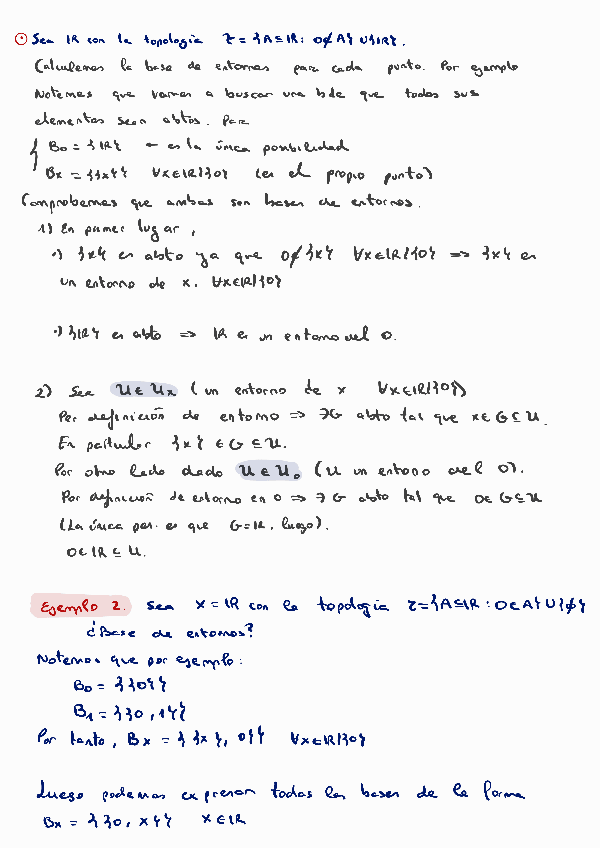 Sea IR con la topología τ = {A ⊆ IR : 0 ∉ A} ∪ {IR}.
Calculemos la base de entornos para cada punto. Por ejemplo
Notemos que vamos a buscar una bde que todos sus
elementos sean abtos. Para
B₀ = {IR} ← es la única posibilidad
Bx = {{x}} ∀x∈IR\{0} (es el propio punto)
Comprobemos que ambas son bases de entornos.
1) En primer lugar,
·) {x} es abto ya que 0∉{x} ∀x∈IR\{0} => {x} es
un entorno de x. ∀x∈IR\{0}
·) {IR} es abto => IR es un entorno del 0.
2) Sea U ∈ Ux (un entorno de x ∀x∈IR\{0})
Por definición de entorno => ∃G abto tal que x∈G⊆U.
En particular {x} ∈ G ⊆ U.
Por otro lado dado U ∈ U₀ (U un entorno del 0).
Por definición de entorno en 0 => ∃G abto tal que 0∈G⊆U
(La única pos. es que G=IR, luego).
0∈IR ⊆ U.
Ejemplo 2. Sea X = IR con la topología τ={A⊆IR : 0∈A} ∪ {∅}
¿Base de entornos?
Notemos que por ejemplo:
B₀ = {{0}}
B₁ = {{0,1}}
Por tanto, Bx = {{x}, 0}} ∀x∈IR\{0}
Luego podemos expresar todas las bases de la forma
Bx = {{0, x}} x∈IR